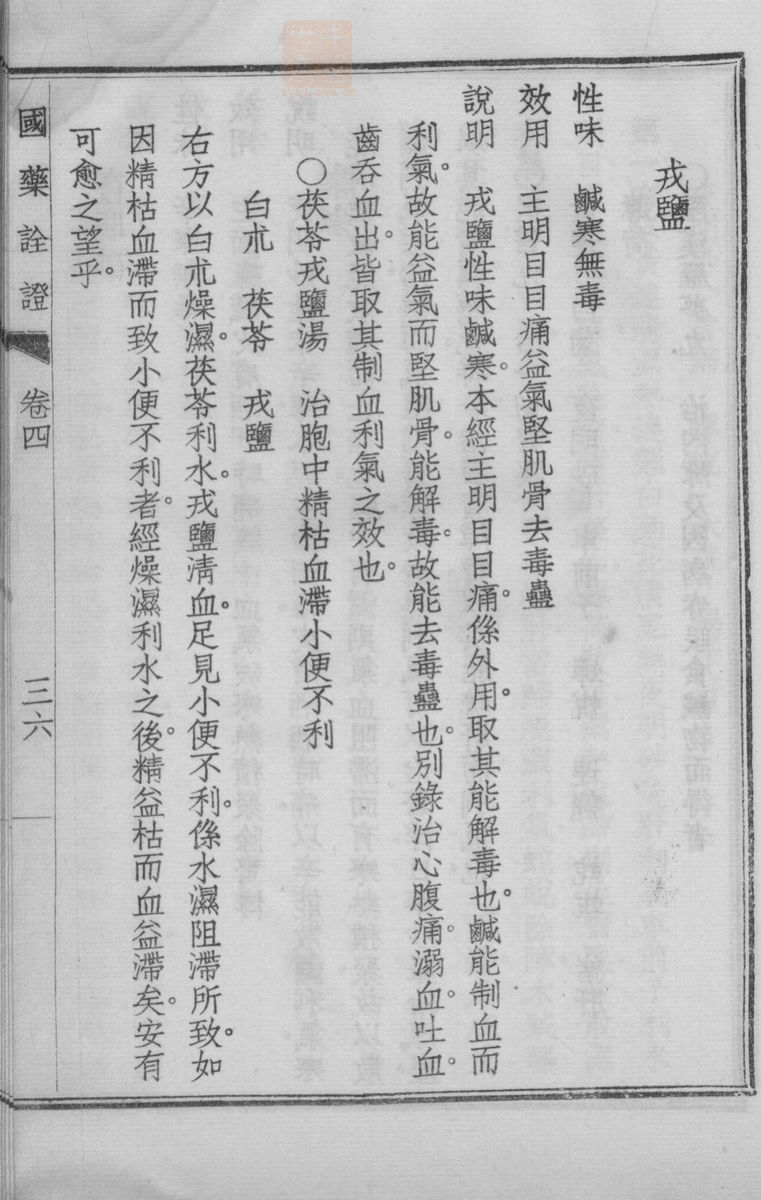 戎鹽
性味　鹹寒無毒
效用　主明目目痛益氣堅肌骨去毒蠱
說明　戎鹽性味鹹寒。本經主明目目痛。係外用。取其能解毒也。鹹能制血而
利氣。故能益氣而堅肌骨。能解毒。故能去毒蠱也。別錄治心腹痛。溺血吐血。
齒吞血出。皆取其制血利氣之效也。
〇茯苓戎鹽湯　治胞中精枯血滯小便不利
白朮　茯苓　戎鹽
右方以白朮燥濕。茯苓利水。戎鹽清血。足見小便不利。係水濕阻滯所致。如
因精枯血滯而致小便不利者。經燥濕利水之後。精益枯而血益滯矣。安有
可愈之望乎。
國藥詮證　卷四　三六